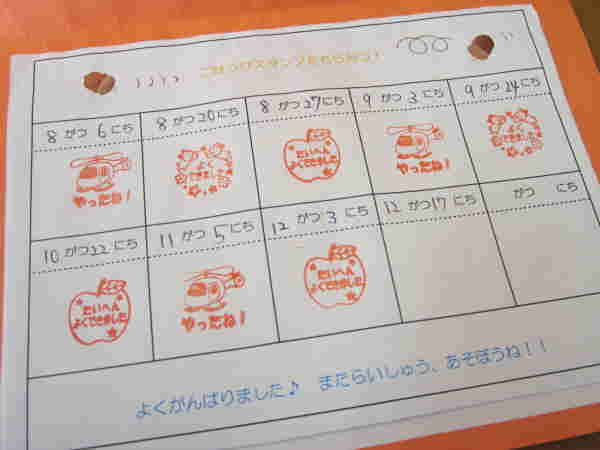 ごほうびスタンプをもらおう！
8 がつ 6 にち
8 がつ 20 にち
8 がつ 27 にち
9 がつ 3 にち
9 がつ 24 にち
やったね！
よく
できました
たいへん
よくできました
やったね！
よく
できました
10 がつ 22 にち
11 がつ 5 にち
12 がつ 3 にち
12 がつ 17 にち
がつ にち
たいへん
よくできました
やったね！
たいへん
よくできました
よくがんばりました♪ またらいしゅう、あそぼうね！！